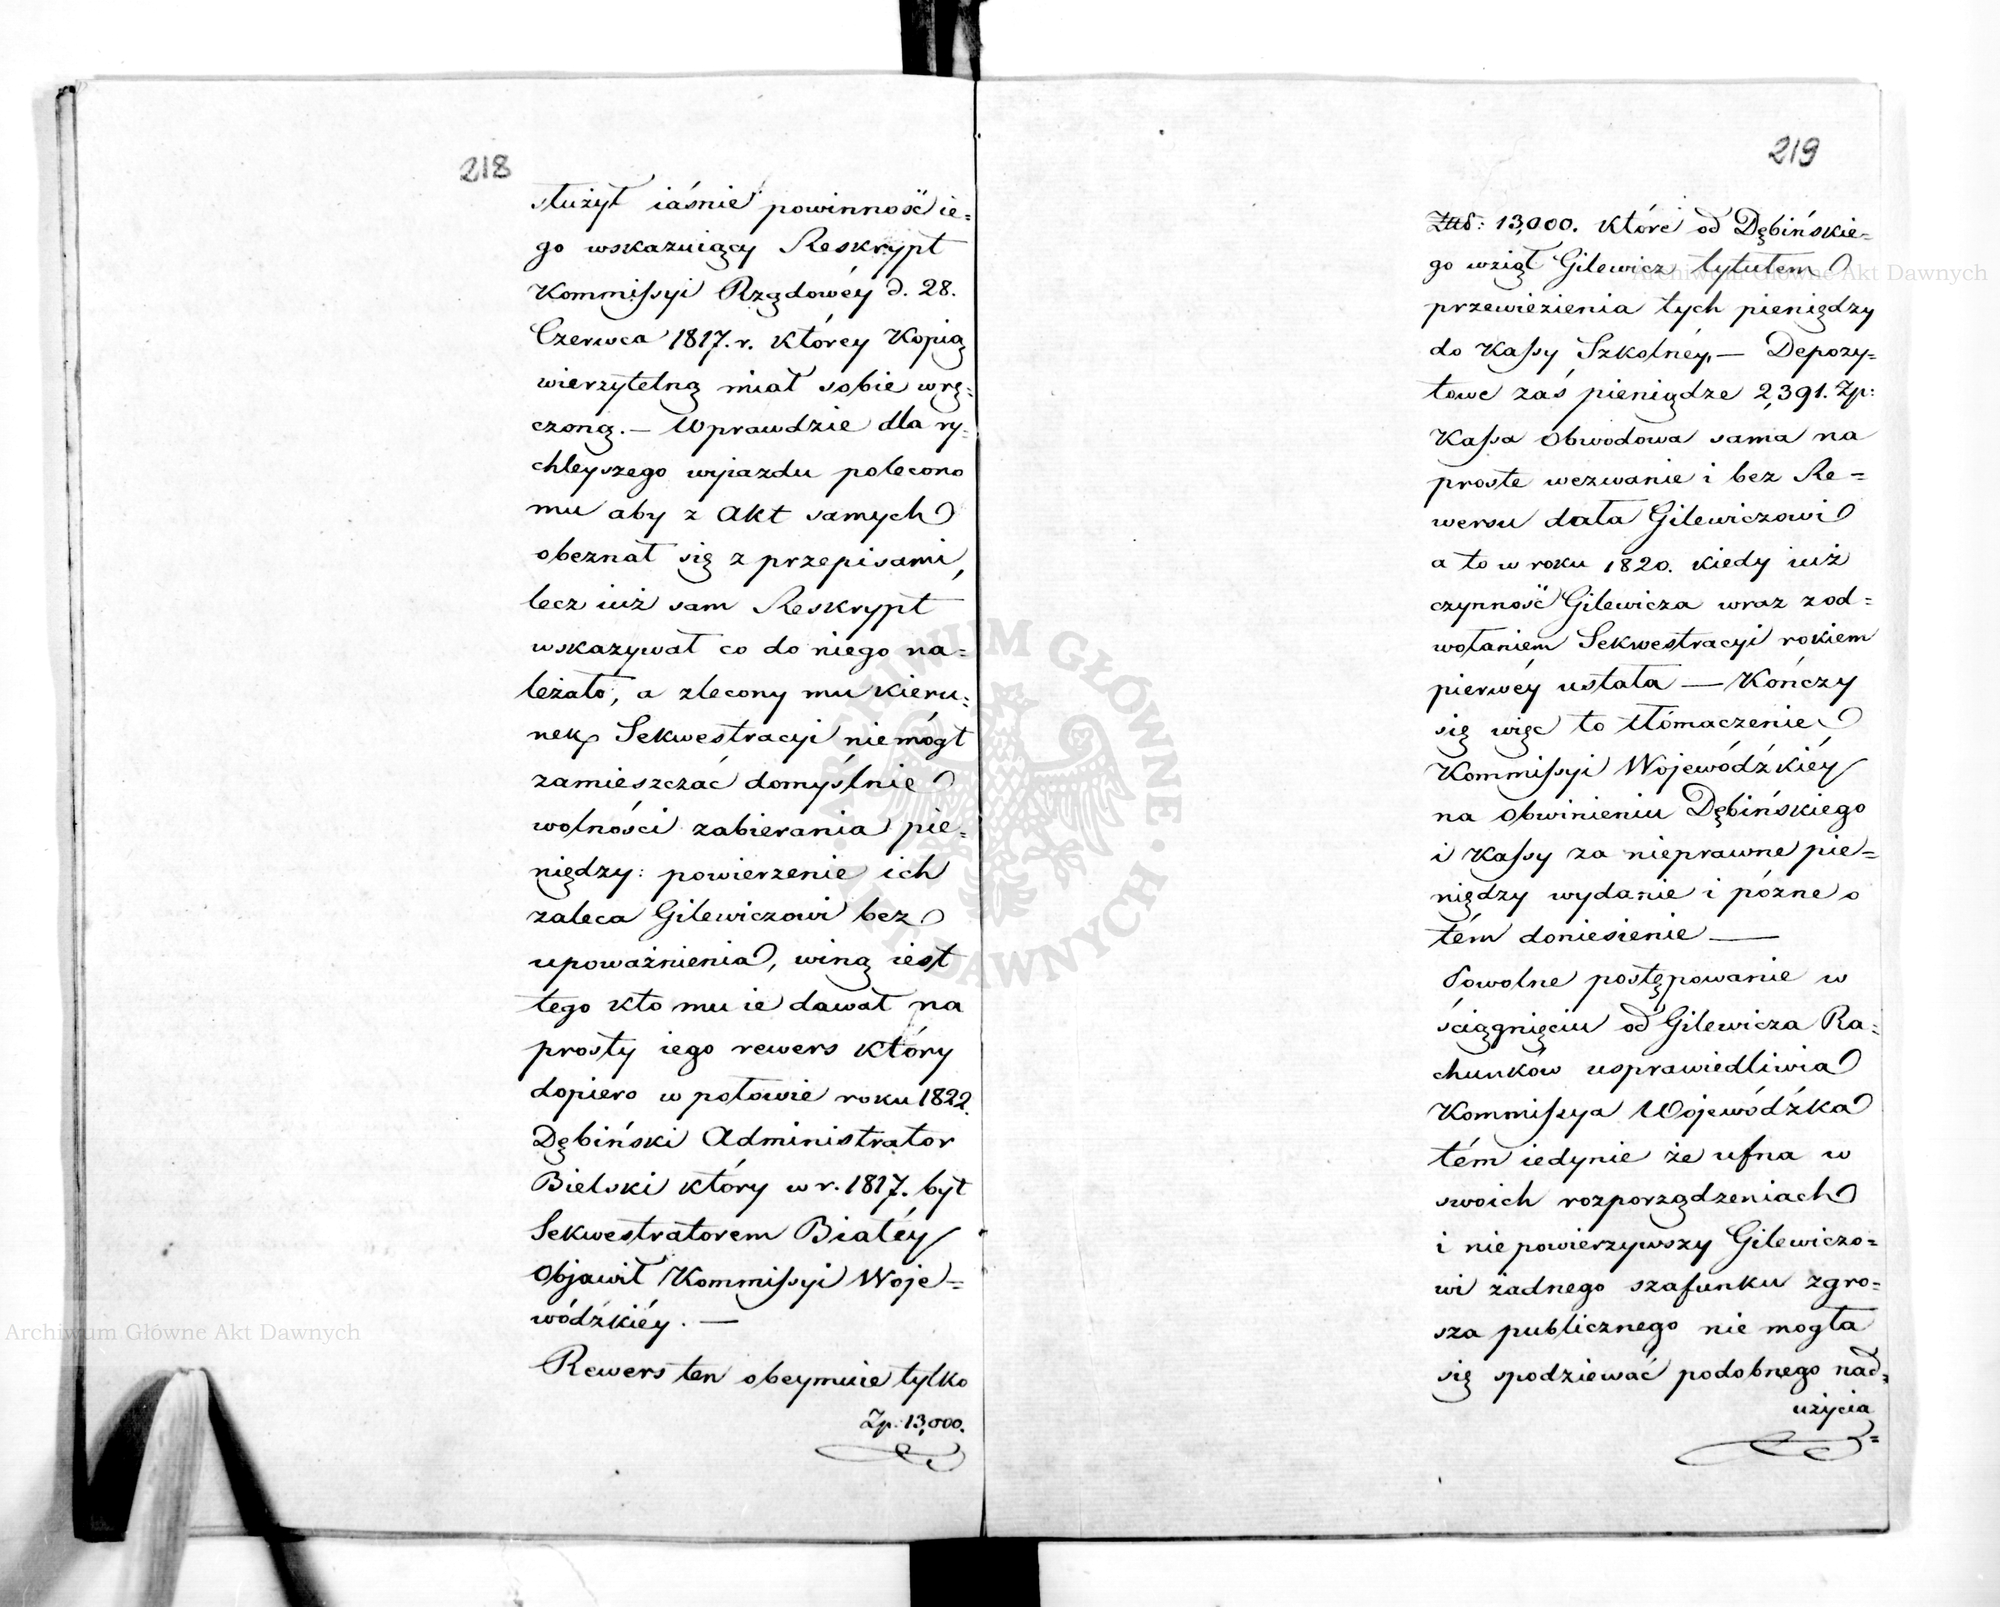 218
służył iaśnie powinność ie=
go wskazuiący Reskrypt
Kommissyi Rządowéy d. 28.
Czerwca 1817. r. którey Kopią
wierzytelną miał sobie wrę=
czoną. — Wprawdzie dla ry=
chleyszego wyiazdu polecono
mu aby z Akt samych
obeznał się z przepisami,
lecz iuż sam Reskrypt
wskazywał co do niego na=
leżało, a zlecony mu kieru=
nek Sekwestracyi niemógł
zamieszczać domyślnie
wolności zabierania pie=
niędzy: powierzenie ich
zaleca Gilewiczowi bez
upoważnienia, winą iest
tego kto mu ie dawał na
prosty iego rewers który
dopiero w połowie roku 1822.
Dębiński Administrator
Bielski który w r. 1817. był
Sekwestratorem Białéy
Objawił Kommissyi Woje=
wódźkiéy. —
Rewers ten obeymuie tylko
Zp: 13,000.
219
13,000. które od Dębińskie=
go wziął Gilewicz tytułem
przewiezienia tych pieniędzy
do Kassy Szkolnéy. — Depozy=
towe zaś pieniądze 2,391. Zp:
Kassa Obwodowa sama na
proste wezwanie i bez Re=
wersu dała Gilewiczowi
a to w roku 1820. kiedy iuż
czynność Gilewicza wraz z od=
wołaniem Sekwestracyi rokiem
pierwéy ustała — Kończy
się więc to tłómaczenie
Kommissyi Wojewódźkiéy
na Obwinieniu Dębińskiego
i Kassy za nieprawne pie=
niędzy wydanie i pózne o
tém doniesienie —
Powolne postępowanie w
ściągnięciu od Gilewicza Ra=
chunków usprawiedliwia
Kommissya Wojewódźka
tém iedynie że ufna w
swoich rozporządzeniach
i nie powierzywszy Gilewiczo=
wi żadnego szafunku zgro=
sza publicznego nie mogła
się spodziewać podobnego nad=
użycia
Archiwum Główne Akt Dawnych
Archiwum Główne Akt Dawnych
ARCHIWUM GŁÓWNE · AKT DAWNYCH ·